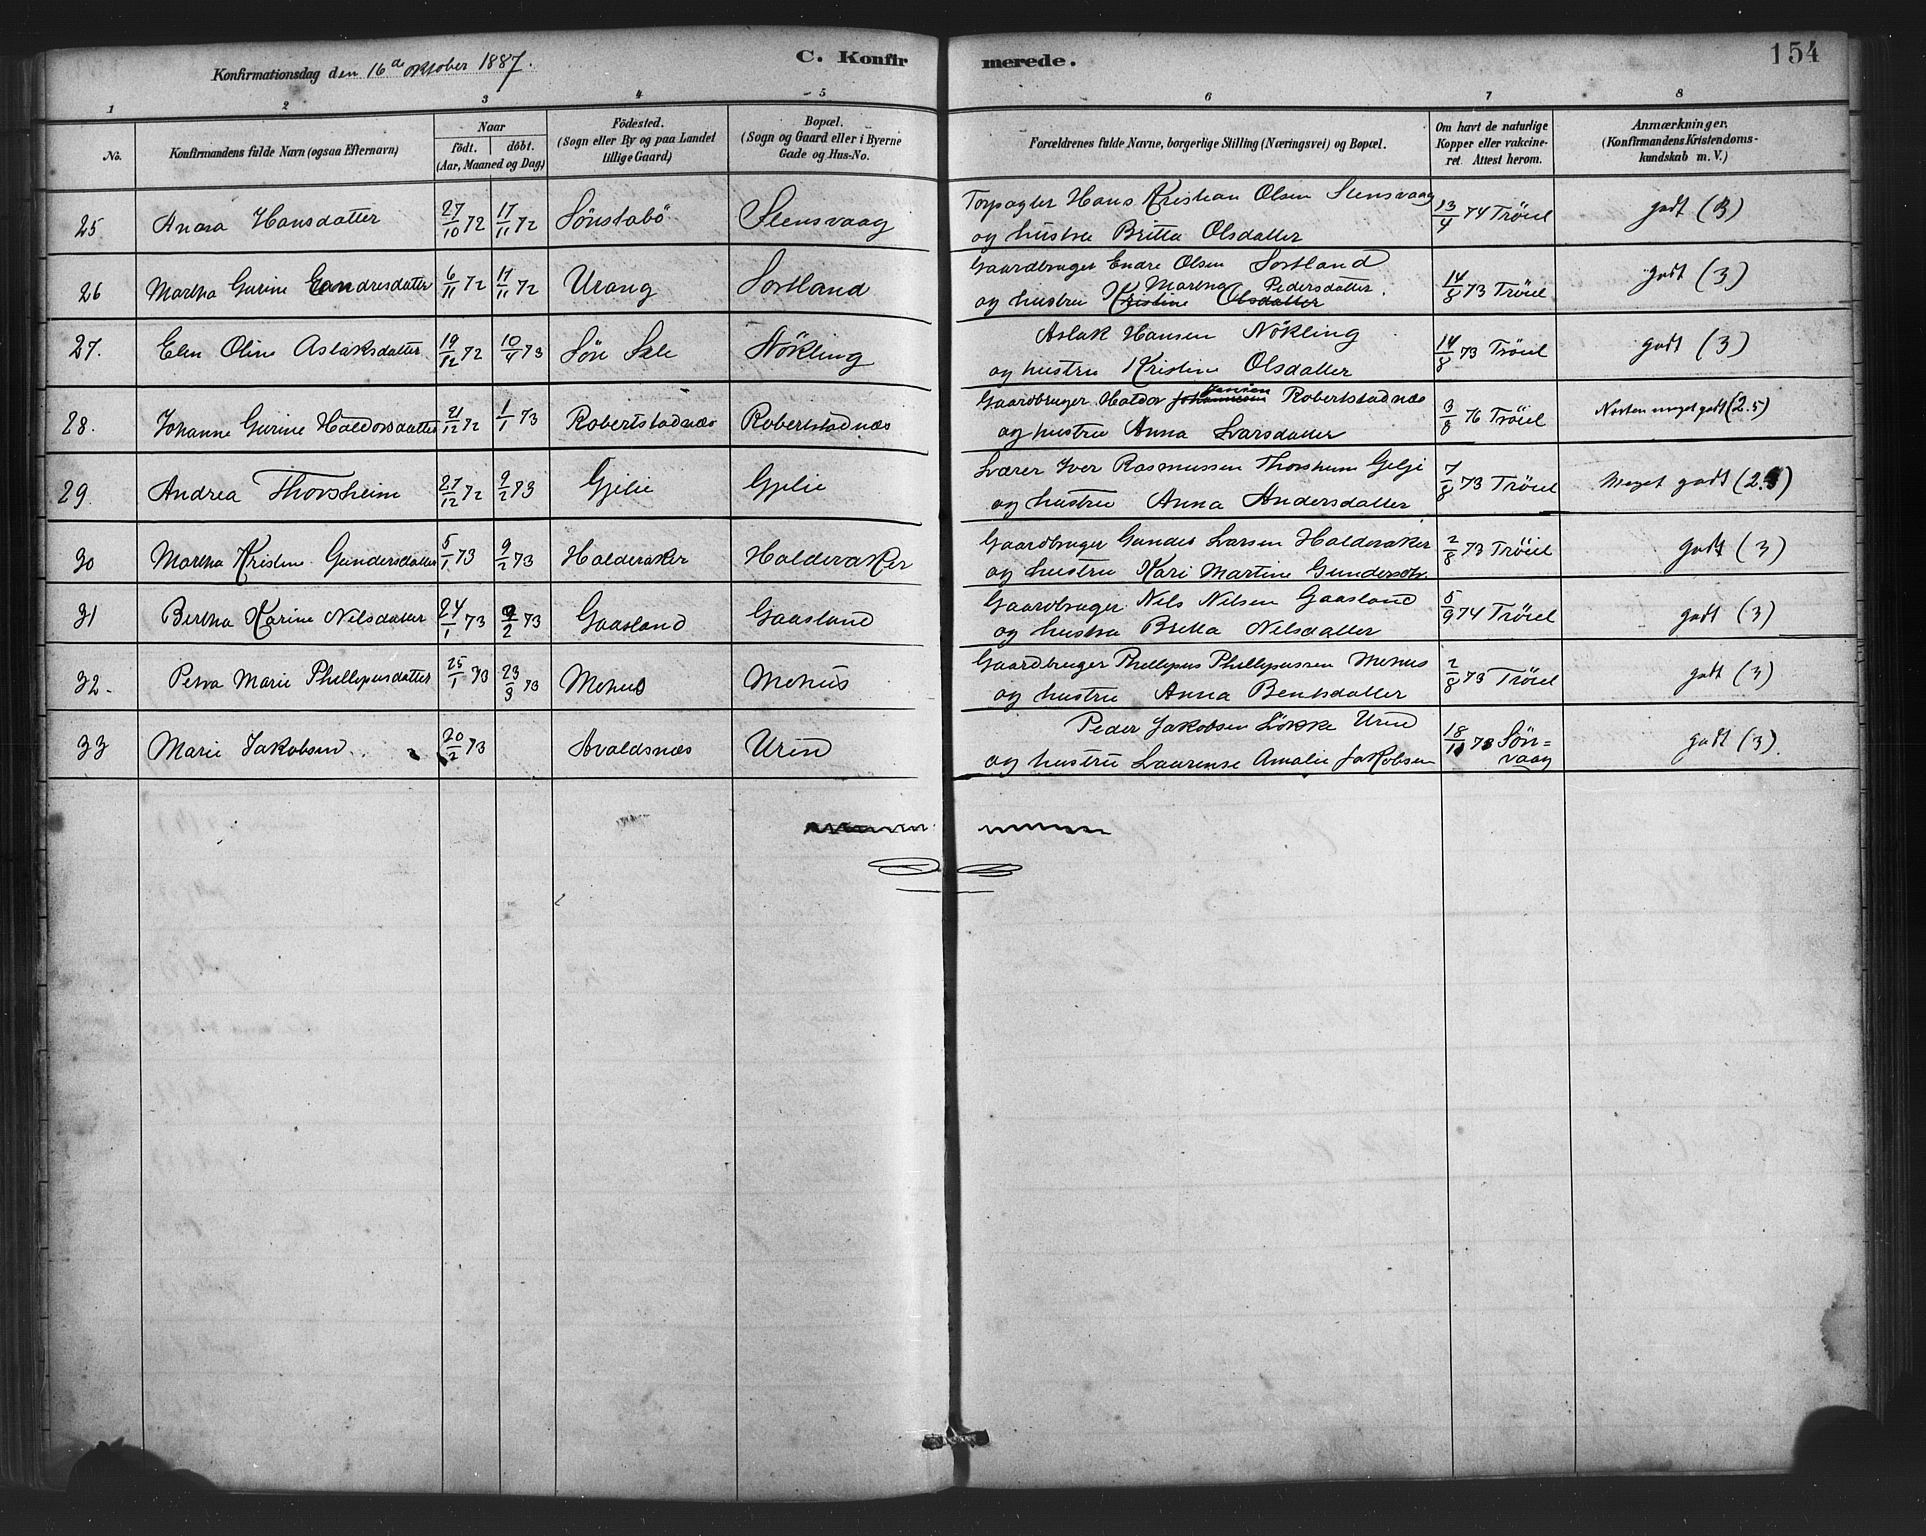 Konfirmationsdag den 16de oktober 1887.
C. Konfirmerede.
154
1 2 3 4 5 6 7 8
No.
Konfirmandens fulde Navn (ogsaa Efternavn)
Naar
födt. döbt.
(Aar, Maaned og Dag)
Födested.
(Sogn eller By og paa Landet
tillige Gaard)
Bopæl.
(Sogn og Gaard eller i Byerne
Gade og Hus-No.
Forældrenes fulde Navne, borgerlige Stilling (Næringsvei) og Bopæl.
Om havt de naturlige
Kopper eller vakcine-
ret. Attest herom.
Anmærkninger.
(Konfirmandens Kristendoms-
kundskab m. V.)
25 Anna Hansdatter 27/10 72 17/11 72 Sönstabö Stensvaag Hans Kristian Olsen Stensvaag 13/4 74 Tröiel godt (3)
og hustru Britta Olsdatter
26 Martha Gurine Endresdatter 6/11 72 17/11 72 Urang Sortland Gaardbruger Endre Olsen Sortland 14/8 73 Tröiel godt (3)
Martha Pedersdatter.
og hustru Kristine Olsdatter
27. Elen Oline Aslaksdatter 19/12 72 10/4 73 Sön Sæle Nökling Aslak Hansen Nökling 14/8 73 Tröiel godt (3)
og hustru Kristine Olsdatter
28. Johanne Gurine Haldorsdatter 21/12 72 1/1 73 Robertstadnæs Robertstadnæs Gaardbruger Haldor Johannesen Jansen Robertstadnæs 3/8 76 Tröiel Næsten meget godt (2.5)
og hustru Anna Larsdatter
29. Andrea Thorsheim 27/12 72 9/2 73 Gjelie Gjelie Lærer Iver Rasmussen Thorsheim Gelje 7/8 73 Tröiel Meget godt
og hustru Anna Andersdatter
30 Martha Kristine Gundersdatter 5/1 73 9/2 73 Halderaker Halderaker Gaardbruger Gunder Larsen Halderaker 2/8 73 Tröiel godt (3)
og hustru Kari Martine Gundersdtr.
31 Bertha Karine Nilsdatter 24/1 73 9/2 73 Gaasland Gaasland Gaardbruger Nils Nilsen Gaasland 5/9 74 Tröiel godt (3)
og hustru Britta Nilsdatter
32. Petra Marie Phillipusdatter 25/1 73 23/3 73 Mehus Mehus Gaardbruger Phillipus Phillipussen Mehus 2/8 73 Tröiel godt (3)
og hustru Anna Bentsdatter
33 Marie Jakobsen 20/2 73 Avaldsnæs Uren Peder Jakobsen Løkke Uren 18/11 73 Søn= godt (3).
og hustru Laurense Amalie Jakobsen vaag